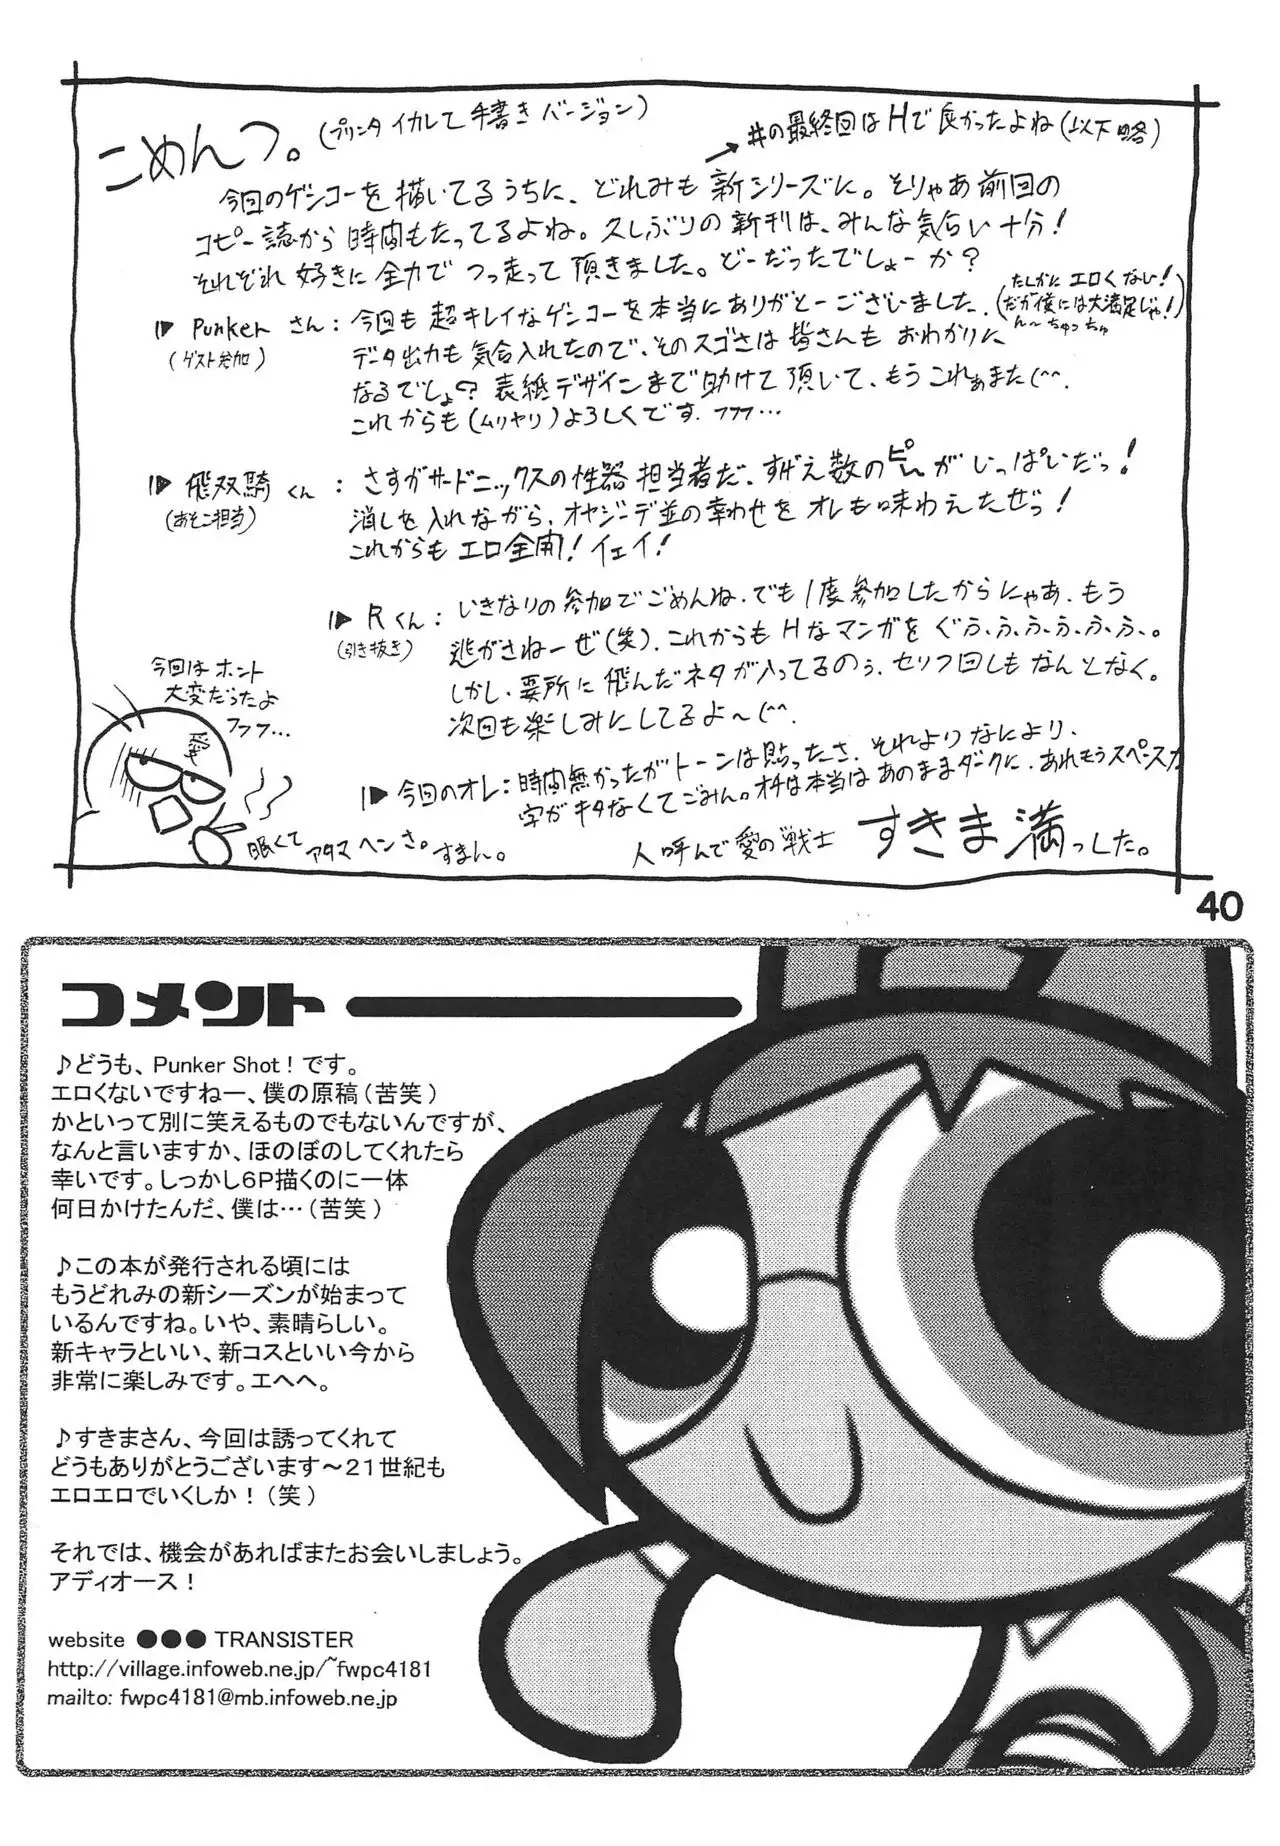 こめんつ。(プリンタイカレて手書きバージョン)
#の最終回はHで良かったよね(以下略)
今回のゲンコーを描いてるうちに、どれみも新シリーズに。そりゃあ前回の
コピー誌から時間もたってるよね。久しぶりの新刊は、みんな気合い十分!
それぞれ好きに全力でつっ走って頂きました。どーだったでしょーか?
▶ Punkerさん:今回も超キレイなゲンコーを本当にありがとーございました。
(たしかにエロくない!
だが僕には大満足じゃ!)
ん〜ちゅっちゅ
(ゲスト参加)
データ出力も気合入れたので、そのスゴさは皆さんもおわかりに
なるでしょ?表紙デザインまで助けて頂いて、もうこれぁまた(^^.
これからも(ムリヤリ)よろしくです.フフフ…
▶ 飛双騎くん:さすがサードニックスの性器担当者だ、すげえ数のピーがいっぱいだっ!
(あそこ担当)
消しを入れながら、オヤジーデ並の幸わせをオレも味わえたぜっ!
これからもエロ全開!イェイ!
▶ Rくん:いきなりの参加でごめんね.でも1度参加したからにゃあ、もう
(引き抜き)
逃がさねーぜ(笑).これからもHなマンガをぐふ、ふ、ふ、ふ、ふ、ふ、。
しかし、要所に飛んだネタが入ってるのぅ、セリフ回しもなんとなく。
次回も楽しみにしてるよ〜(^^.
今回はホント
大変だったよ
フフフ…
愛
▶ 今回のオレ:時間無かったがトーンは貼ったさ、それよりなにより、
字がキタなくてごみん。オチは本当はあのままダークに、あれもうスペースが
眠くてアタマヘンさ。すまん。
人呼んで愛の戦士 すきま満っした。
40
コメント
♪どうも、Punker Shot!です。
エロくないですねー、僕の原稿(苦笑)
かといって別に笑えるものでもないんですが、
なんと言いますか、ほのぼのしてくれたら
幸いです。しっかし6P描くのに一体
何日かけたんだ、僕は…(苦笑)
♪この本が発行される頃には
もうどれみの新シーズンが始まって
いるんですね。いや、素晴らしい。
新キャラといい、新コスといい今から
非常に楽しみです。エへへ。
♪すきまさん、今回は誘ってくれて
どうもありがとうございます〜21世紀も
エロエロでいくしか!(笑)
それでは、機会があればまたお会いしましょう。
アディオース!
website ●●● TRANSISTER
http://village.infoweb.ne.jp/~fwpc4181
mailto: fwpc4181@mb.infoweb.ne.jp